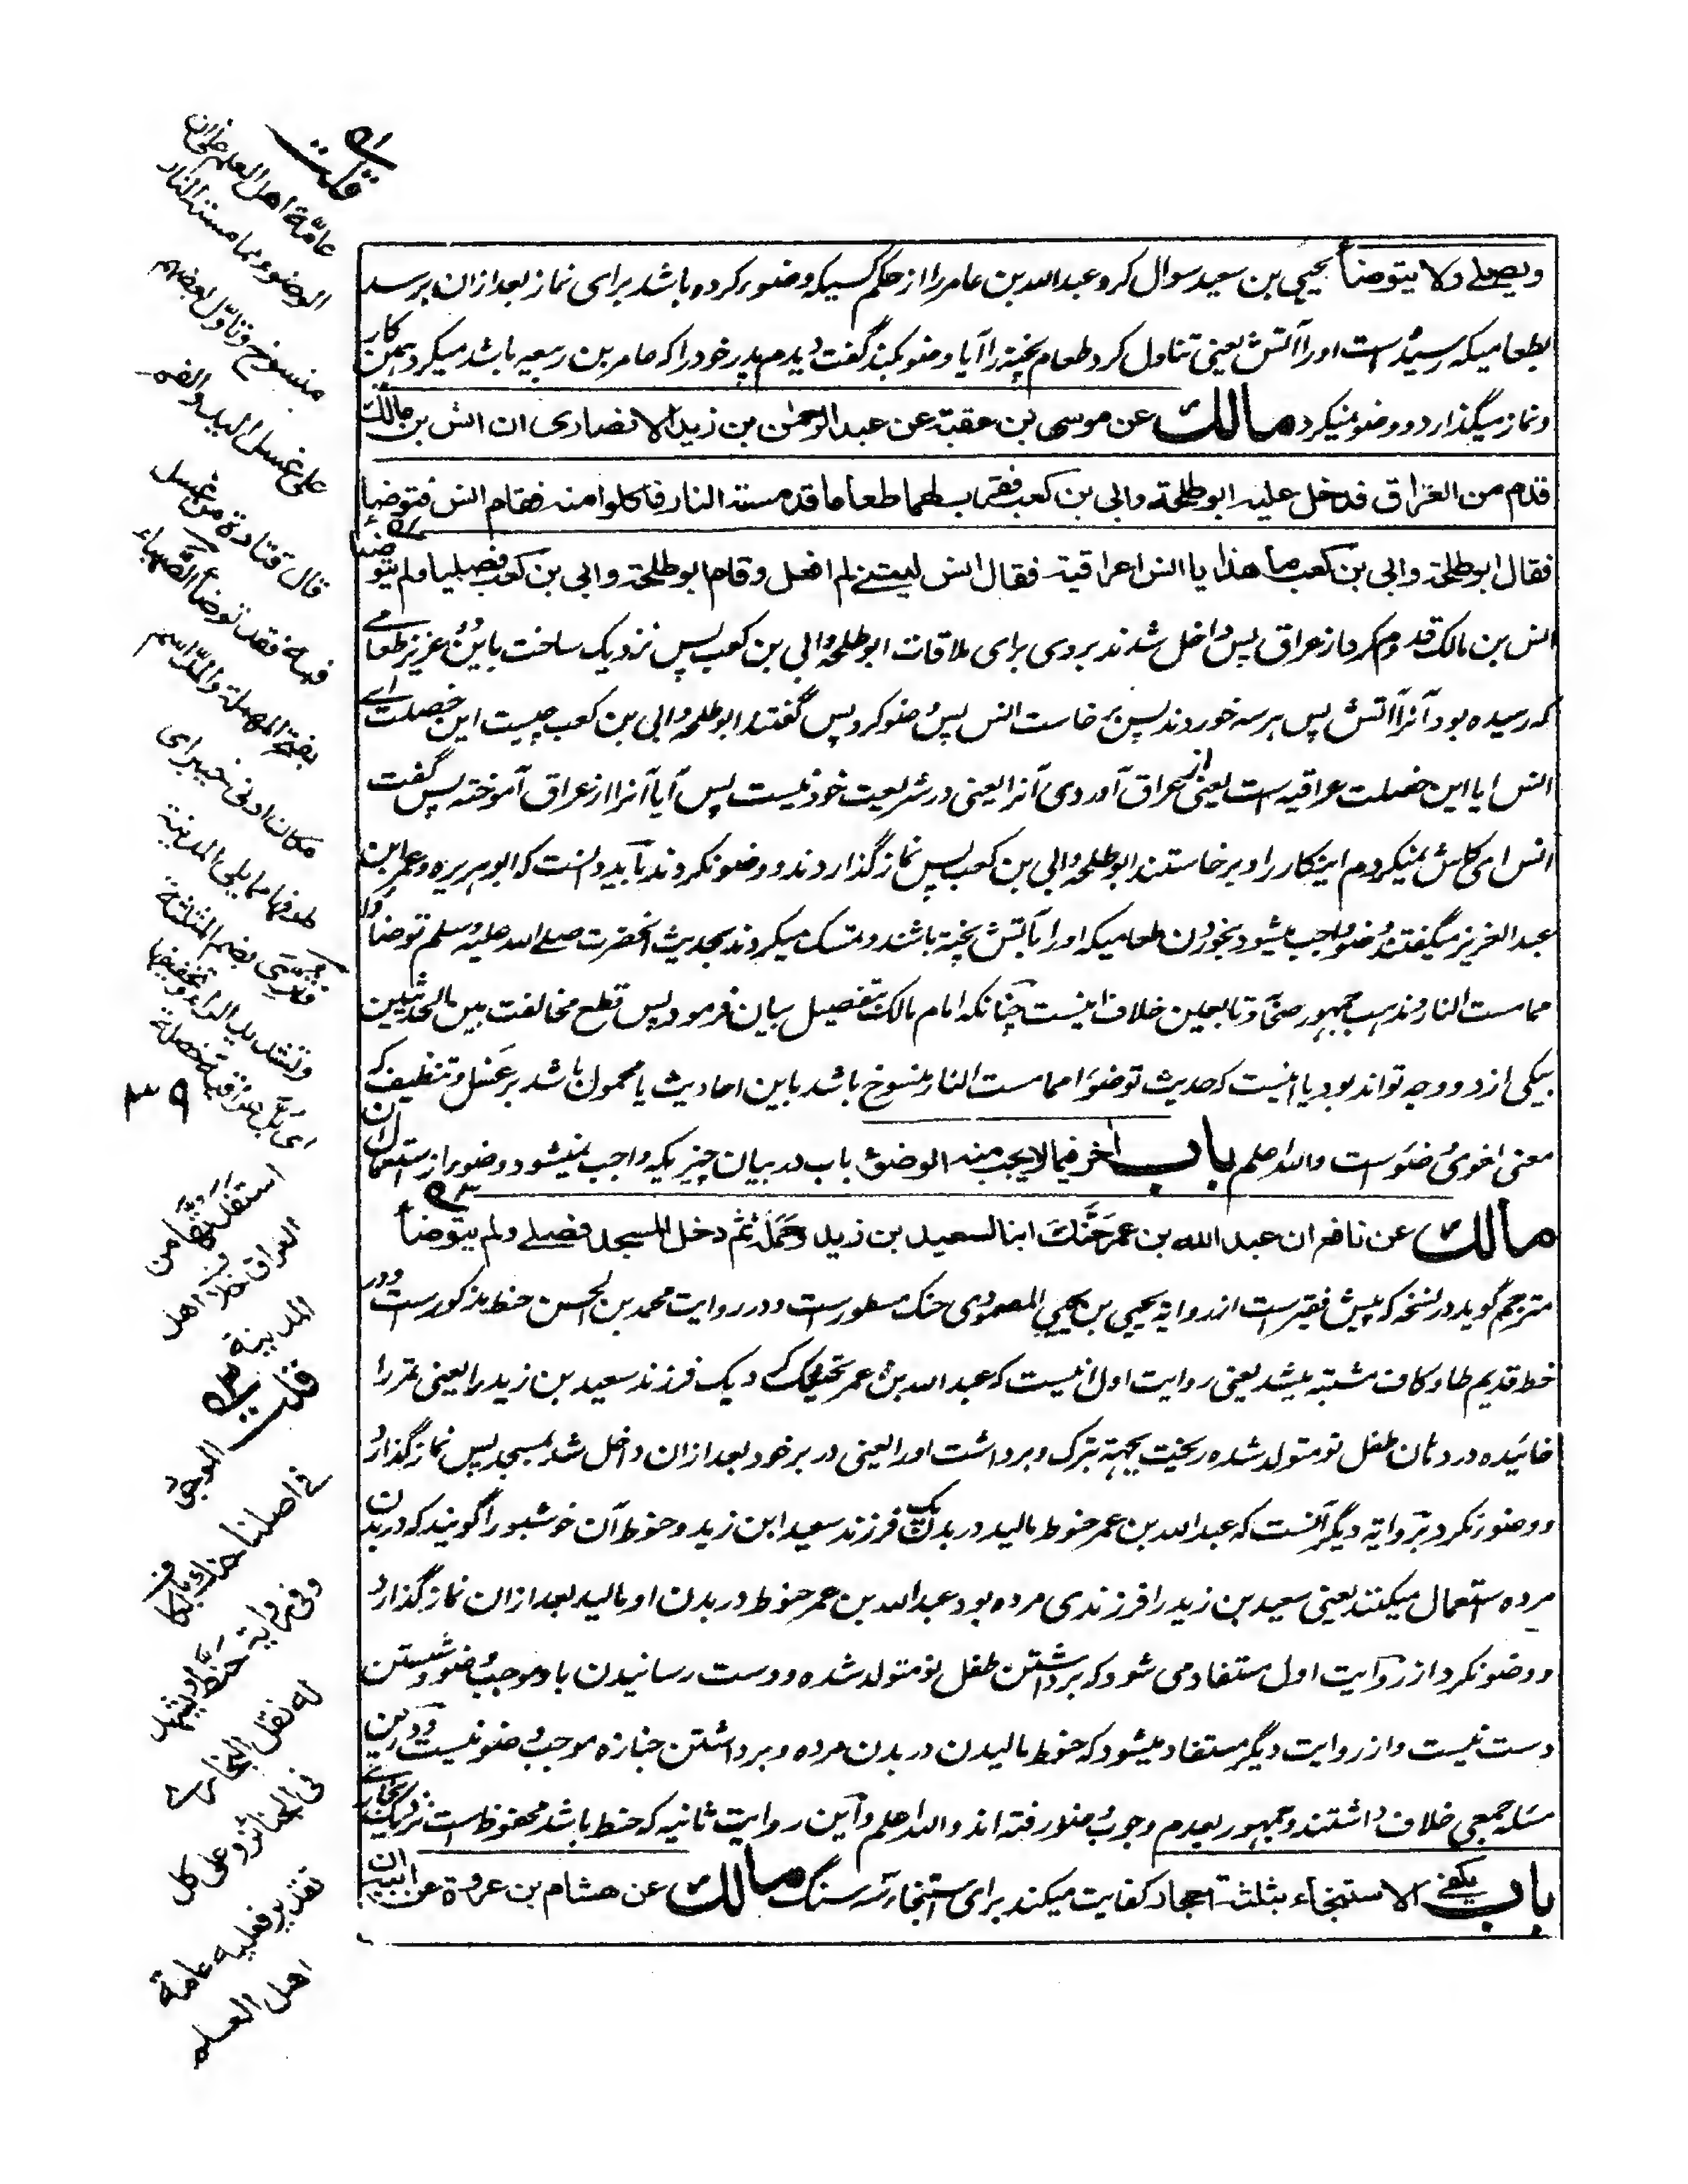 ويصلي ولا يتوضأ يحيى بن سعيد سوال کرد عبد الله بن عامر را از حکم کسیکه وضو کرده باشد برای نماز بعد ازان برسد
بطعامیکه رسیده است اورا آتش یعنی تناول کرد طعام پخته را آیا وضو بکند گفت دیدم پدر خود را که عامر بن ربیعه باشد میکرد همین کار
و نماز میگذارد و وضو نمیکرد مالك عن موسى بن عقبة عن عبد الرحمن بن زيد الانصارى ان انس بن مالك
قدم من العراق فدخل عليه ابو طلحة وابي بن كعب فقرب لهما طعاما قد مسته النار فاكلوا منه فقام انس فتوضأ
فقال ابو طلحة وابي بن كعب ما هذا يا انس اعراقية فقال انس ليتني لم افعل وقام ابو طلحة وابي بن كعب فصليا ولم يتوضئا
انس بن مالک قدوم کرد از عراق پس داخل شدند بروی برای ملاقات ابو طلحه و ابی بن کعب پس نزدیک ساخت باین دو عزیز طعامے
که رسیده بود آنرا آتش پس هر سه خوردند پس برخاست انس پس وضو کرد پس گفتند ابو طلحه و ابی بن کعب چیست این خصلت اے
انس ایا این خصلت عراقیه است یعنی از عراق آوردی آنرا یعنی در شریعت خود نیست پس آیا آنرا از عراق آموخته پس گفت
انس ای کاش نمیکردم اینکار را و برخاستند ابو طلحه و ابی بن کعب پس نماز گذاردند و وضو نکردند باید دانست که ابو هریره و عمر بن
عبد العزیز میگفتند وضو واجب میشود بخوردن طعامیکه اورا بآتش پخته باشند و تمسک میکردند بحدیث آنحضرت صلے الله علیه وسلم توضأوا
مما مست النار و مذهب جمهور صحابه و تابعین خلاف اینست چنانکه امام مالک بتفصیل بیان فرمود پس قطع مخالفت بین الحدیثین
بیکی از دو وجه تواند بود یا اینست که حدیث توضوا مما مست النار منسوخ باشد باین احادیث یا محمول باشد بر غسل و تنظیف که
معنی لغوی وضو است والله اعلم باب اخر فيما لا يجب منه الوضوء باب در بیان چیزیکه واجب نمیشود وضو از استعمال ان
مالك عن نافع ان عبد الله بن عمر حَنَّكَ ابنا لسعيد بن زيد وحَمَلَه ثم دخل المسجد فصلے ولم يتوضأ
مترجم گوید در نسخه که پیش فقیر است از روایه یحیی بن یحیی المصمودی حنک مسطور است و در روایت محمد بن الحسن حنط مذکور است و در
خط قدیم طا و کاف مشتبه میشد یعنی روایت اول اینست که عبد الله بن عمر تحنیک کرد یک فرزند سعید بن زید را یعنی تمر را
خائیده در دهان طفل نو متولد شده ریخت بجهة تبرک و برداشت اورا یعنی در بر خود بعد ازان داخل شد بمسجد پس نماز گذارد
و وضو نکرد بروایه دیگر آنست که عبد الله بن عمر حنوط مالید در بدن یک فرزند سعید ابن زید و حنوط آن خوشبو را گویند که در بدن
مرده استعمال میکنند یعنی سعید بن زید را فرزندی مرده بود عبد الله بن عمر حنوط در بدن او مالید بعد ازان نماز گذارد
و وضو نکرد از روایت اول مستفاد می شود که برداشتن طفل نو متولد شده و دست رسانیدن باو موجب وضو و شستن
دست نیست و از روایت دیگر مستفاد میشود که حنوط مالیدن در بدن مرده و برداشتن جنازه موجب وضو نیست و درین
مسئله جمعی خلاف داشتند و جمهور بعدم وجوب وضو رفته اند والله اعلم و این روایت ثانیه که حنط باشد محفوظ است نزدیک بخاری
باب يكفي الاستنجاء بثلثة احجار کفایت میکند برای استنجا سه سنگ مالك عن هشام بن عروة عن ابيه ان
قلت
عامّة اهل العلم على ان
الوضوء مما مسته النار
منسوخ وتاوّل بعضهم
على غسل اليد والفم
قال قتادة من غسل
فمه فقد توضأ الصهباء
بفتح المهملة والمد اسم
مكان ادنى خيبر اى
طرفها مما يلي المدينة
فثرّى بضم المثلثة
وتشديد الراء وتخفيفها
اى بل عراقية خصلة
استفدتها من
العراق خلاف اهل
المدينة
قلت
الموجود
فى اصلنا حنك بالكاف
وفى رواية حنط ويشهد
له نقل البخارى
فى الجنائز وعلى كل
تقدير فعليه عامة
اهل العلم
٣٩